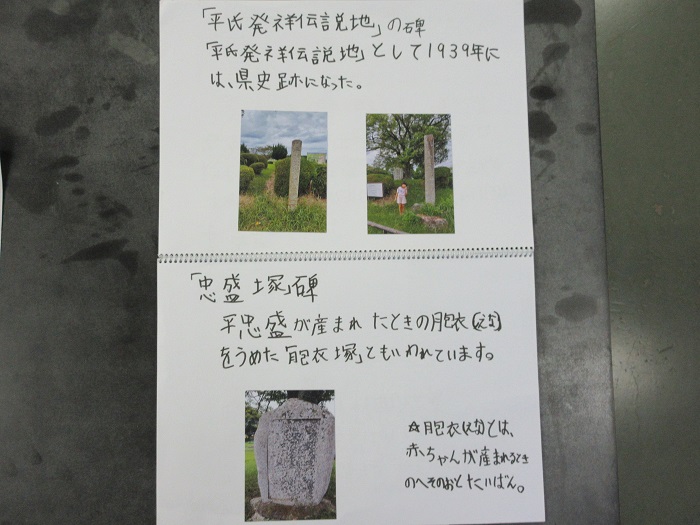 「平氏発祥伝説地」の碑
「平氏発祥伝説地」として1939年に
は、県史跡になった。
「忠盛塚」碑
平忠盛が産まれたときの胞衣(えな)
をうめた「胞衣塚」ともいわれています。
☆胞衣(えな)とは、
赤ちゃんが産まれるとき
のへそのおとたいばん。